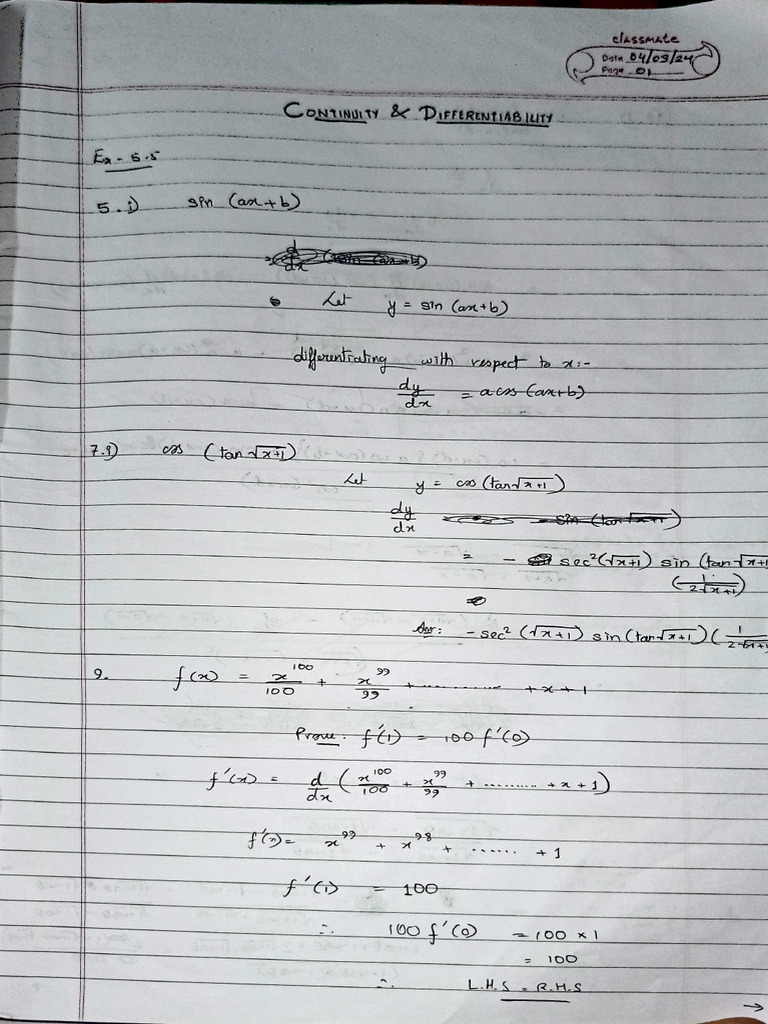 classmate
Date 04/09/24
Page 01
CONTINUITY & DIFFERENTIABILITY
Ex - 5.5
5. i) sin (ax+b)
Let y = sin (ax+b)
differentiating with respect to x:-
dy/dx = a cos (ax+b)
7. i) cos (tan√x+1)
Let y = cos (tan√x+1)
dy/dx
= - sec²(√x+1) sin (tan√x+1
(1/2√x+1)
Ans: -sec² (√x+1) sin (tan√x+1) (1/2√x+1
9. f(x) = x¹⁰⁰/100 + x⁹⁹/99 + ............ + x + 1
Prove: f'(1) = 100 f'(0)
f'(x) = d/dx (x¹⁰⁰/100 + x⁹⁹/99 + ......... + x + 1)
f'(x) = x⁹⁹ + x⁹⁸ + ...... + 1
f'(1) = 100
∴ 100 f'(0) = 100 × 1
= 100
∴ L.H.S = R.H.S
→